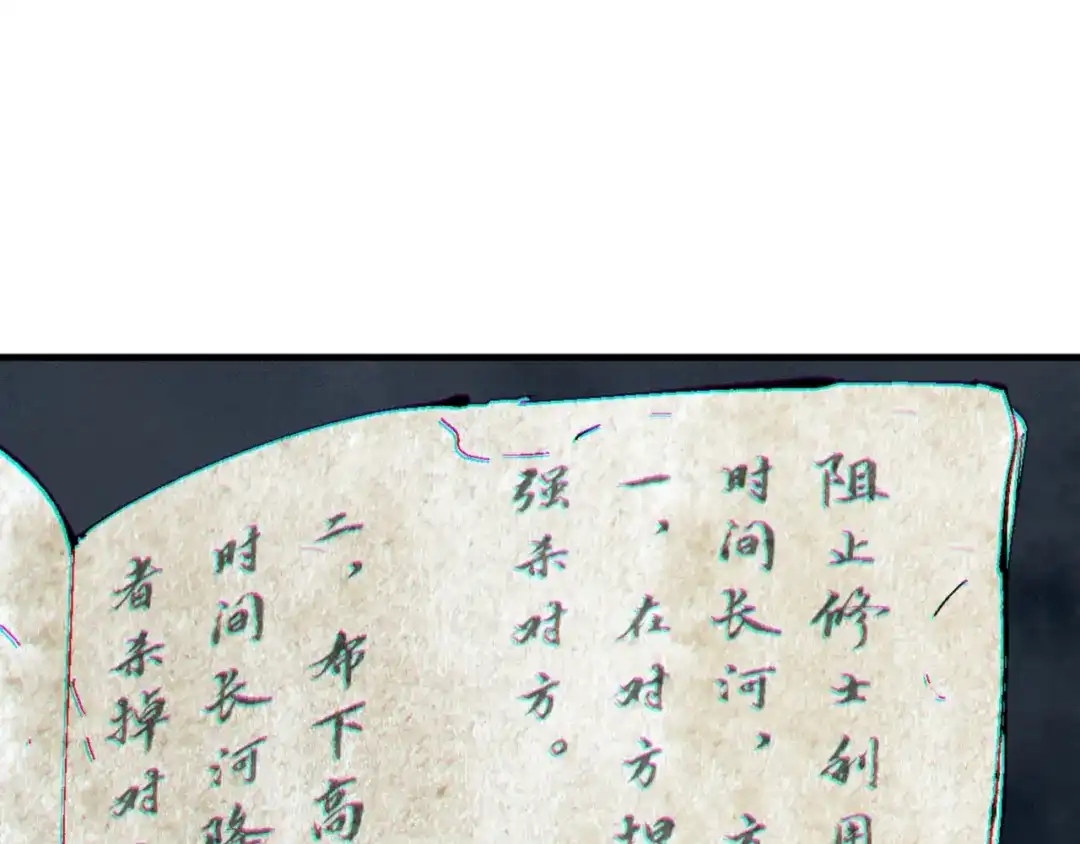 阻止修士利用
时间长河，方
一，在对方提
强杀对方。
二，布下高
时间长河降
者杀掉对